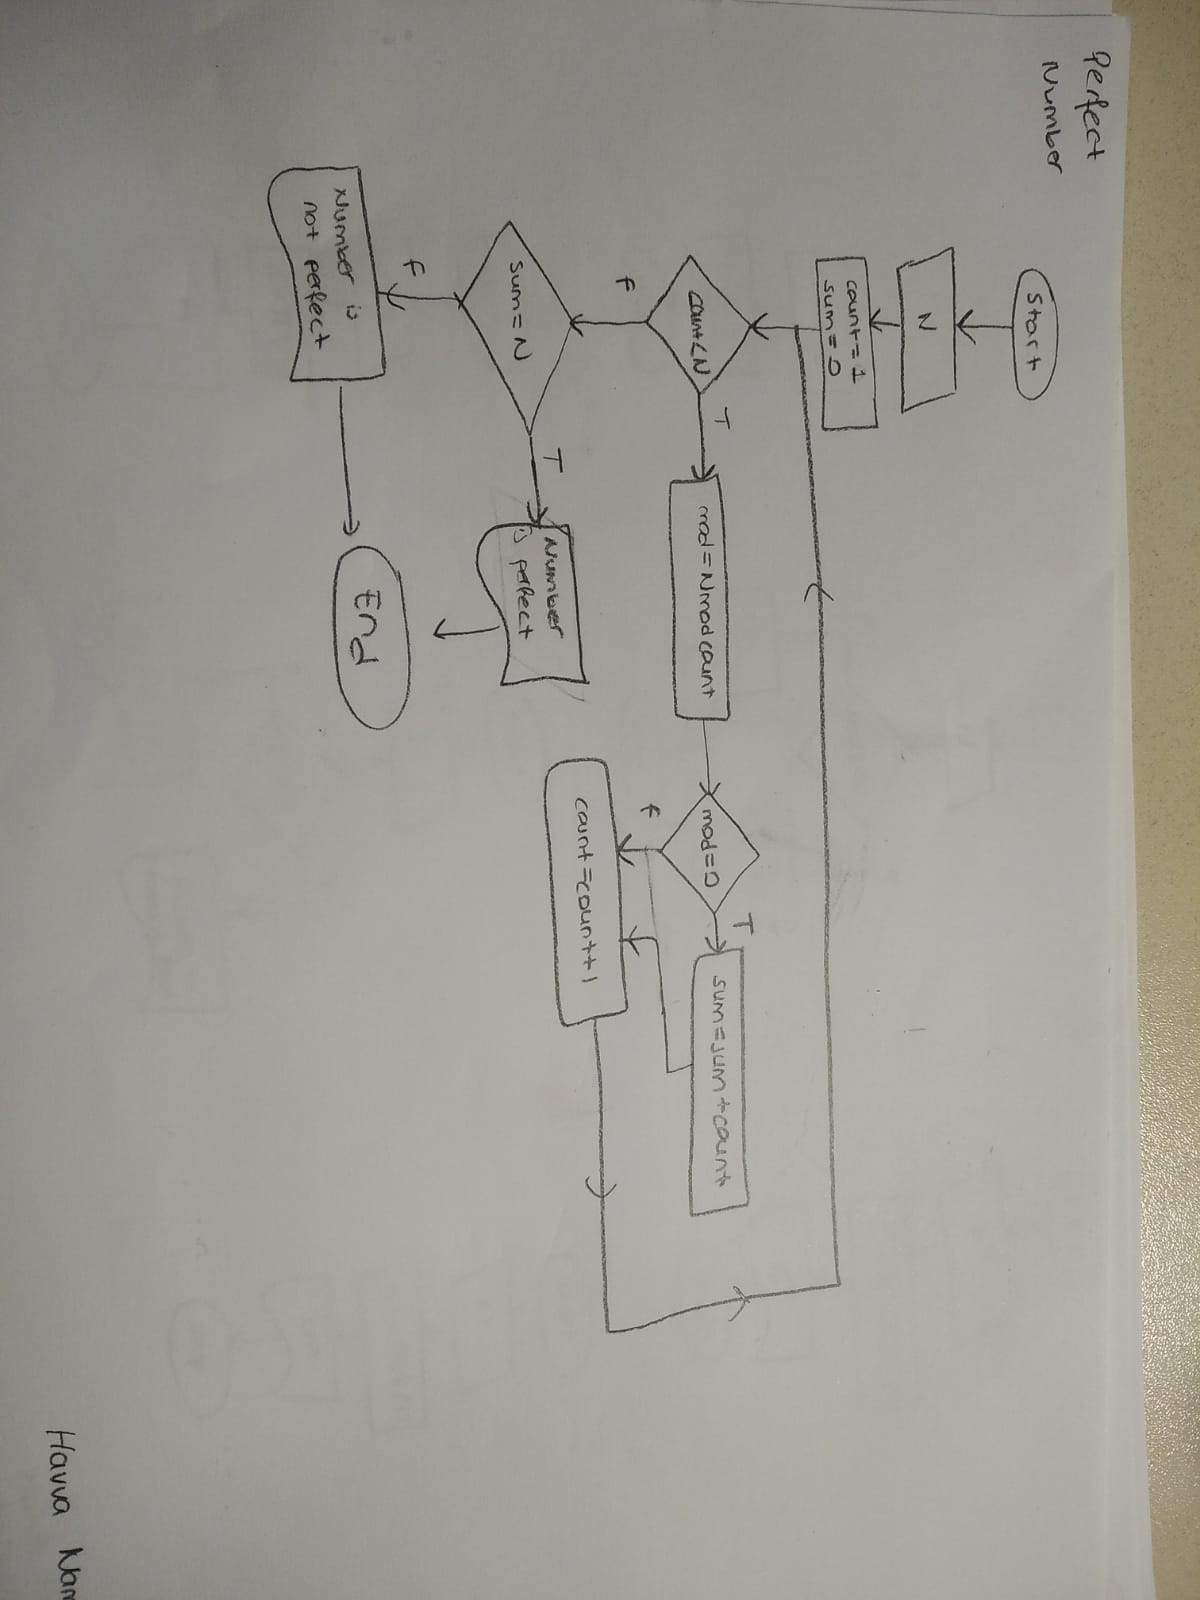 Perfect
Number
Start
N
count=1
sum=0
count<N
T
mod=Nmodcount
mod=0
T
sum=sum+count
F
count=count+1
F
sum=N
T
Number
is perfect
F
Number is
not perfect
End
Havva